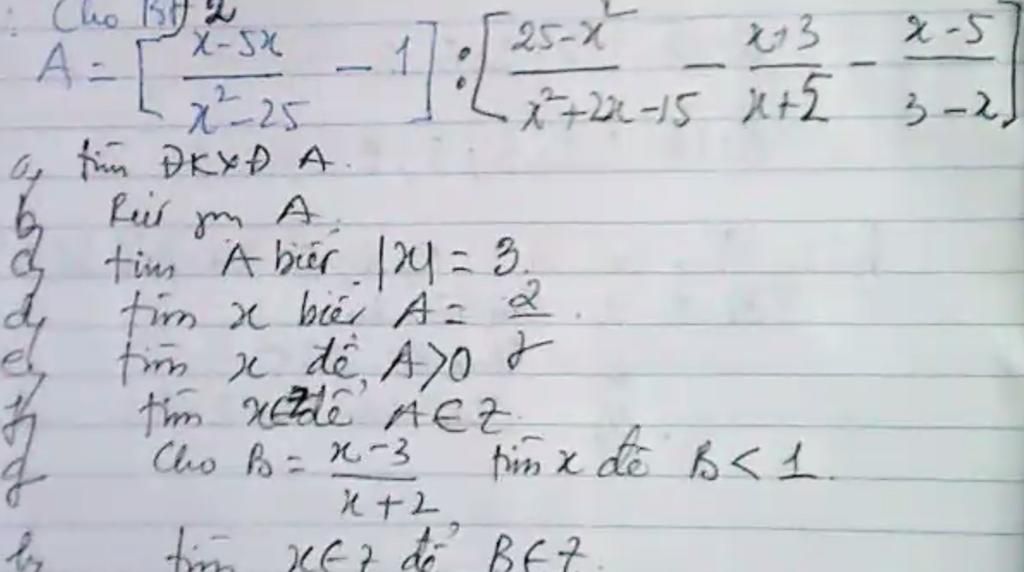 Cho BT
A = [ (x² - 5x)/(x² - 25) - 1 ] : [ (25 - x²)/(x² + 2x - 15) - (x + 3)/(x + 5) - (x - 5)/(3 - x) ]
a, tìm ĐKXĐ A.
b, Rút gọn A.
c, tìm A biết |x| = 3.
d, tìm x biết A =
e, tìm x để A > 0
f, tìm x ∈ Z để A ∈ Z.
g Cho B = (x - 3)/(x + 2) tìm x để B < 1.
h, tìm x ∈ Z để B ∈ Z.